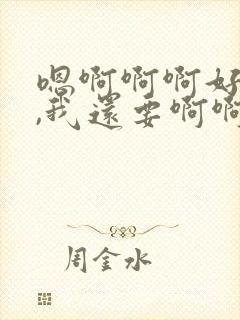 嗯啊啊啊好
,我还要啊啊
周金水